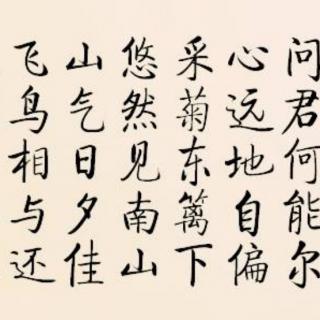 问君何能尔
心远地自偏
采菊东篱下
悠然见南山
山气日夕佳
飞鸟相与还